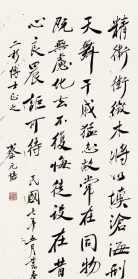 精衛銜微木將以填滄海刑
天舞干戚猛志故常在同物
既無慮化去不復悔徒設在昔
心良晨詎可待 民國七年五月書
博士正之 蔡元培